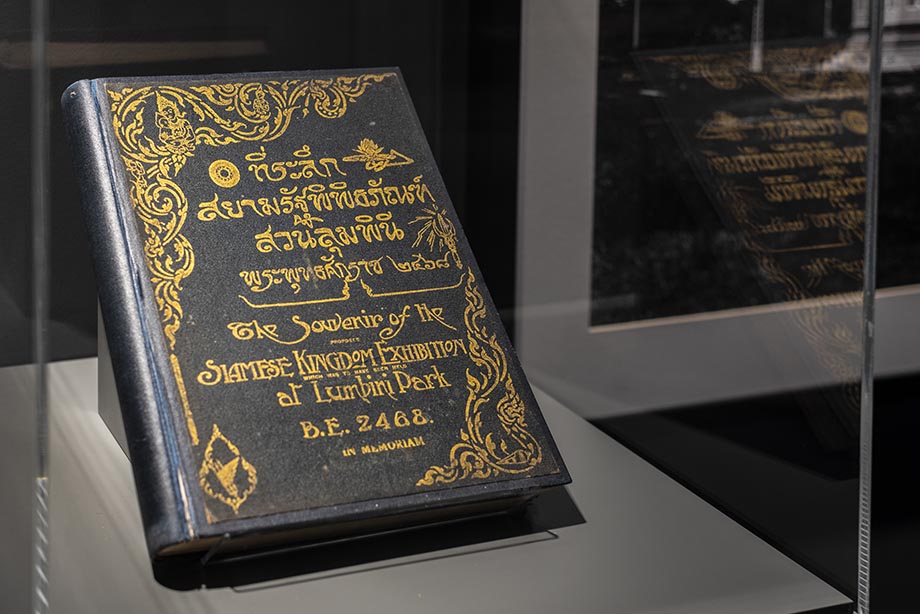 ที่ระลึก
สยามรัฐพิพิธภัณฑ์
สวนลุมพินี
พระพุทธศักราช ๒๔๖๘
The Souvenir of the
PROPOSED
SIAMESE KINGDOM EXHIBITION
WHICH WAS TO HAVE BEEN HELD
at Lumbini Park
B.E. 2468.
IN MEMORIAM